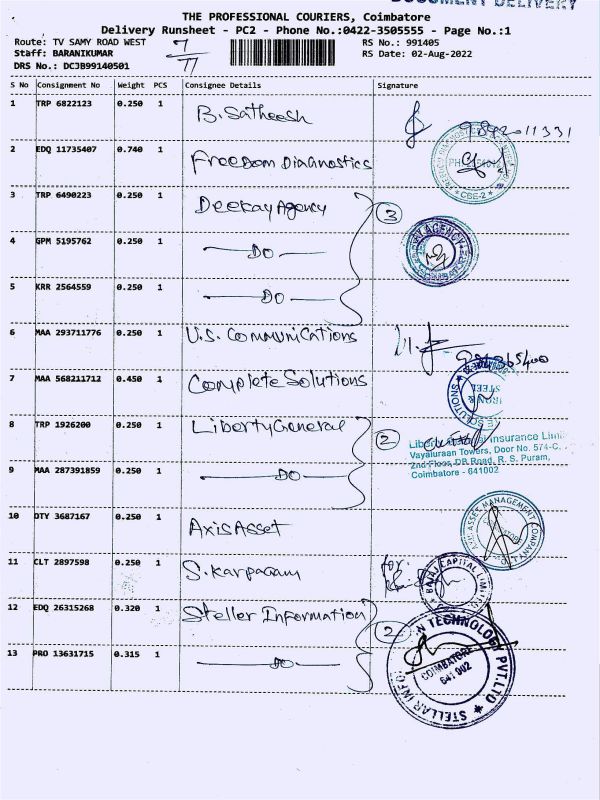 DOCUMENT DELIVERY
THE PROFESSIONAL COURIERS, Coimbatore
Delivery Runsheet - PC2 - Phone No.:0422-3505555 - Page No.:1
Route: TV SAMY ROAD WEST
RS No.: 991405
Staff: BARANIKUMAR
RS Date: 02-Aug-2022
DRS No.: DCJ3B99140501
S No Consignment No Weight PCS Consignee Details Signature
1 TRP 6822123 0.250 1 B. Satheesh
2 EDQ 11735407 0.740 1 Freedom Diagnostics
CBE-2
3 TRP 6490223 0.250 1 Deekay Agency 3
4 GPM 5195762 0.250 1 DO
AGENCY
5 KRR 2564559 0.250 1 DO
6 MAA 293711776 0.250 1 U.S. Communications
7 MAA 568211712 0.450 1 Complete Solutions
SOLUTIONS
STEEL
IRON &
8 TRP 1926200 0.250 1 Liberty General 2
Insurance Limi
Vayaluraan Towers, Door No. 574-C,
2nd Floor, DB Road, R. S. Puram,
Coimbatore - 641002
9 MAA 287391859 0.250 1 DO
10 DTY 3687167 0.250 1 Axis Asset
AXIS ASSET MANAGEMENT COMPANY LTD
11 CLT 2897598 0.250 1 S. Karpagam for.
BAJAJ CAPITAL LIMI
12 EDQ 26315268 0.320 1 Steller Information 2
13 PRO 13631715 0.315 1 DO
STELLAR INFO
N TECHNOLOGY PVT.LTD
COIMBATORE
641 002